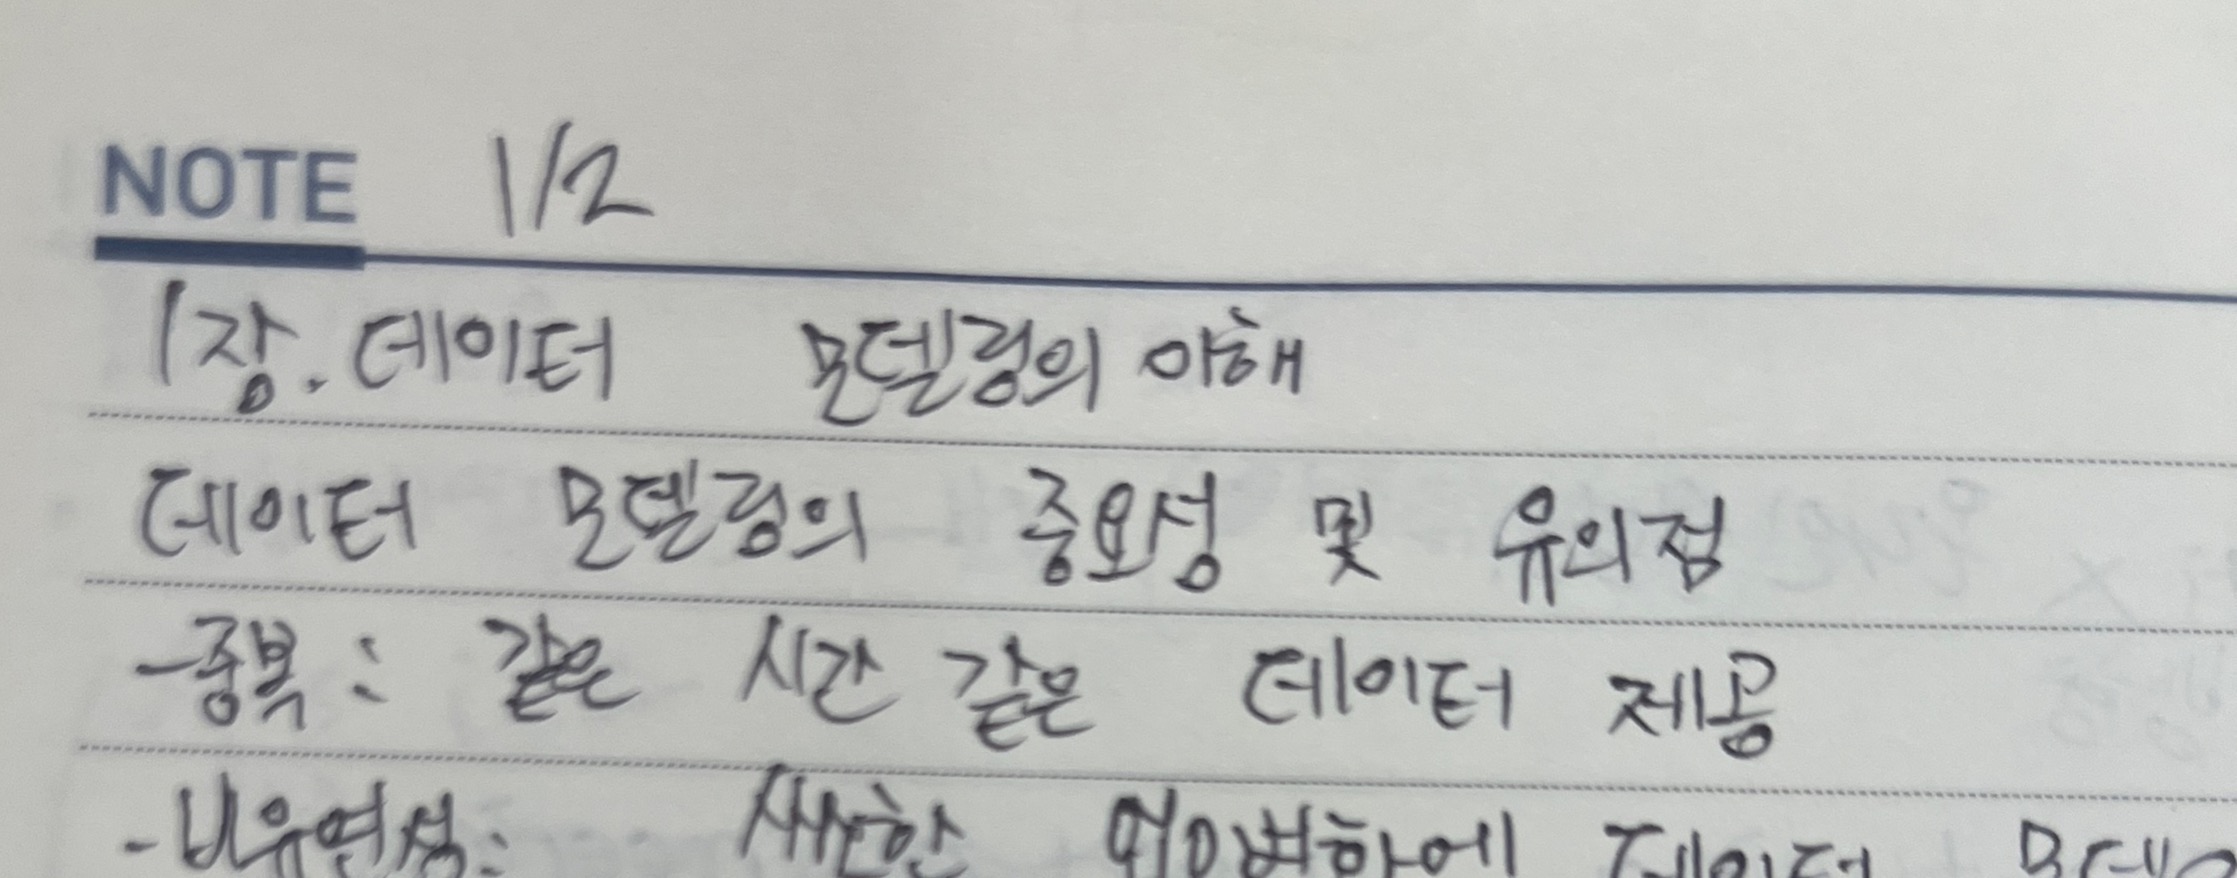 NOTE 1/2
1장. 데이터 모델링의 이해
데이터 모델링의 중요성 및 유의점
- 중복 : 같은 시간 같은 데이터 제공
- 비유연성: 사소한 데이터